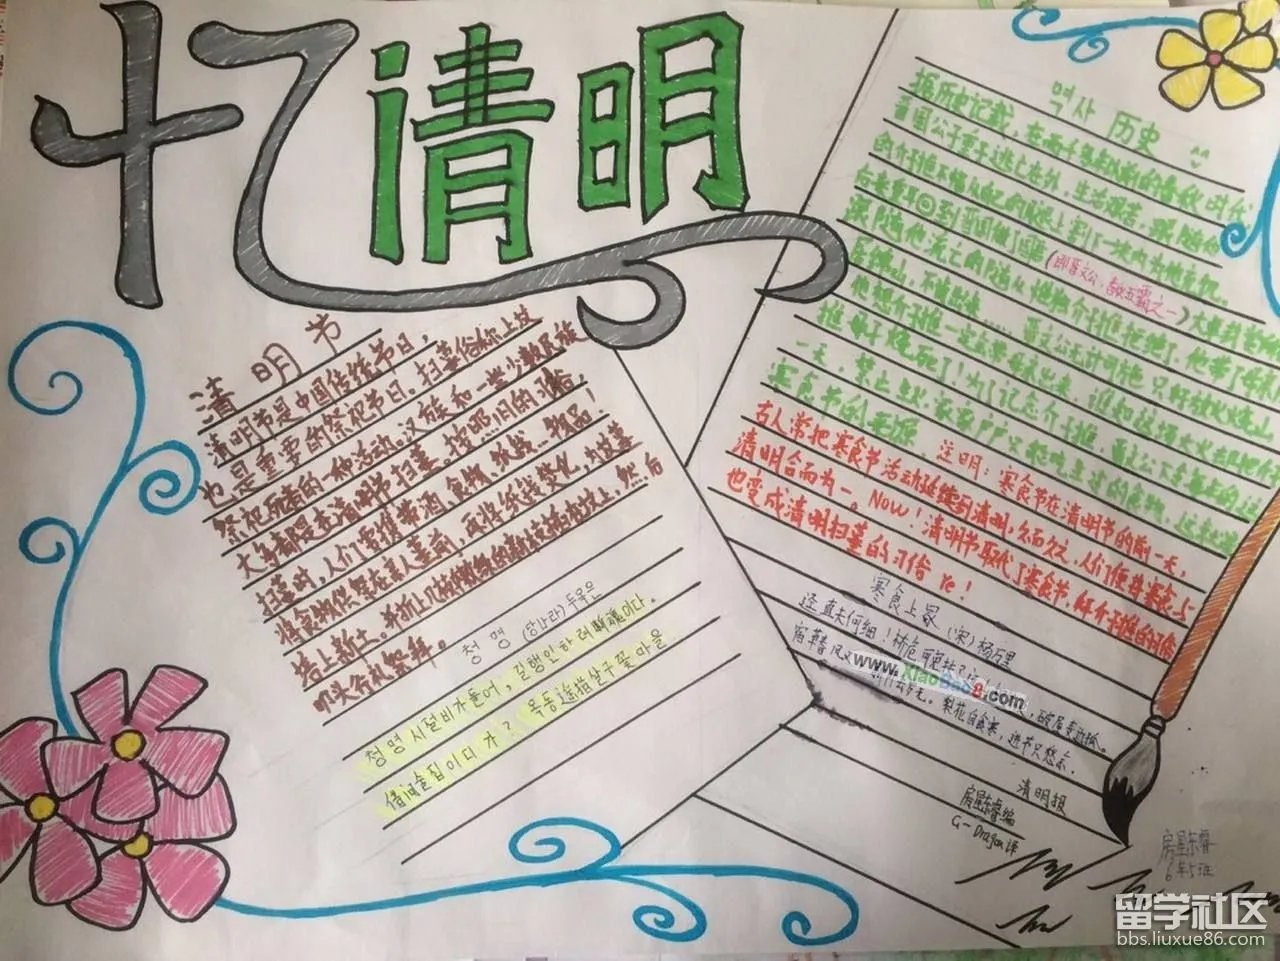 忆清明
清明节
清明节是中国传统节日,
也是重要的祭祀节日。扫墓俗称上坟
祭祀死者的一种活动。汉族和一些少数民族
大多都是在清明节扫墓。按照旧的习俗,
扫墓时,人们要携带酒食物,纸钱...物品!
将食物供祭在亲人墓前,再将纸钱焚化,为坟墓
培上新土。并折上几枝嫩绿的新枝插在坟上,然后
叩头行礼祭拜。
청명 (당나라) 두목은
청명시절비가들어,길행인하려斷魂이다.
借问술집이디가? 목동遥指살구꽃마을
역사 历史
据历史记载,在两千多年以前的春秋时代
晋国公子重耳逃亡在外,生活艰苦,跟随他
的介子推不惜从自己的腿上割下一块肉为他充饥。
在来重耳回到晋国做了国君(即晋文公,春秋五霸之一)
跟随他流亡的随从
居绵山,不肯出来......晋文公无计可施,只好放火烧山
他想介子推一定会带母亲出来,谁知这场大火
推母子烧死了!为了记念介子推,晋文公下令每年的这
一天,禁止生火
寒食节的来源
注明:寒食节在清明节的前一天,
古人常把寒食节活动延续到清明,久而久之,人们便将寒食与
清明合而为一。Now!清明节取代了寒食节,
也变成清明扫墓的习俗 le!
寒食上冢 (宋)杨万里
迳直夫何细!桥危可更扶
宿草春风又
无。梨花自食寒,进节只愁余。
清明报
房星东睿编
G-Dragon译
房星东睿
6年5班
www.XiaoBao8.com
留学社区
bbs.liuxue86.com